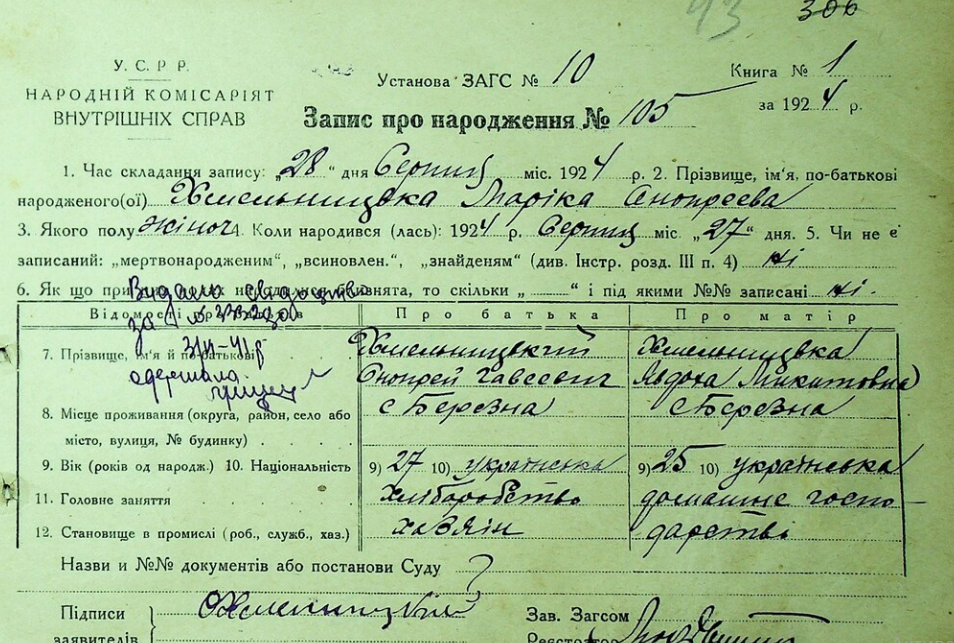 93 306
У. С. Р. Р.
НАРОДНІЙ КОМІСАРІЯТ
ВНУТРІШНІХ СПРАВ
Установа ЗАГС № 10
Книга № 1
за 1924 р.
Запис про народження № 105
1. Час складання запису: „28“ дня Серпня міс. 1924 р. 2. Прізвище, ім'я, по-батькові
народженого(ої) Хмельницька Маріка Онопреєва
3. Якого полу жіноч 4. Коли народився (лась): 1924 р. Серпня міс. „27“ дня. 5. Чи не є
записаний: „мертвонародженим“, „всиновлен.“, „знайденям“ (див. Інстр. розд. III п. 4) ні
6. Як що при родах народилися близнята, то скільки „ “ і під якими №№ записані ні.
Видано свідоцтво
за №
31/І–41р
одержала
Відомості про батьків
Про батька
Про матір
7. Прізвище, ім'я й по-батькові
Хмельницький
Онопрей Савсевич
Хмельницька
Явдоха Микитовна
8. Місце проживання (округа, район, село або
місто, вулиця, № будинку)
с Березна
с Березна
9. Вік (років од народж.) 10. Національність
9) 27 10) українська
9) 25 10) українська
11. Головне заняття
хліборобство
домашнє госпо-
12. Становище в промислі (роб., служб., хаз.)
хазяін
дарство
Назви и №№ документів або постанови Суду
Підписи
заявителів
Хмельницький
Зав. Загсом
Реєстратор